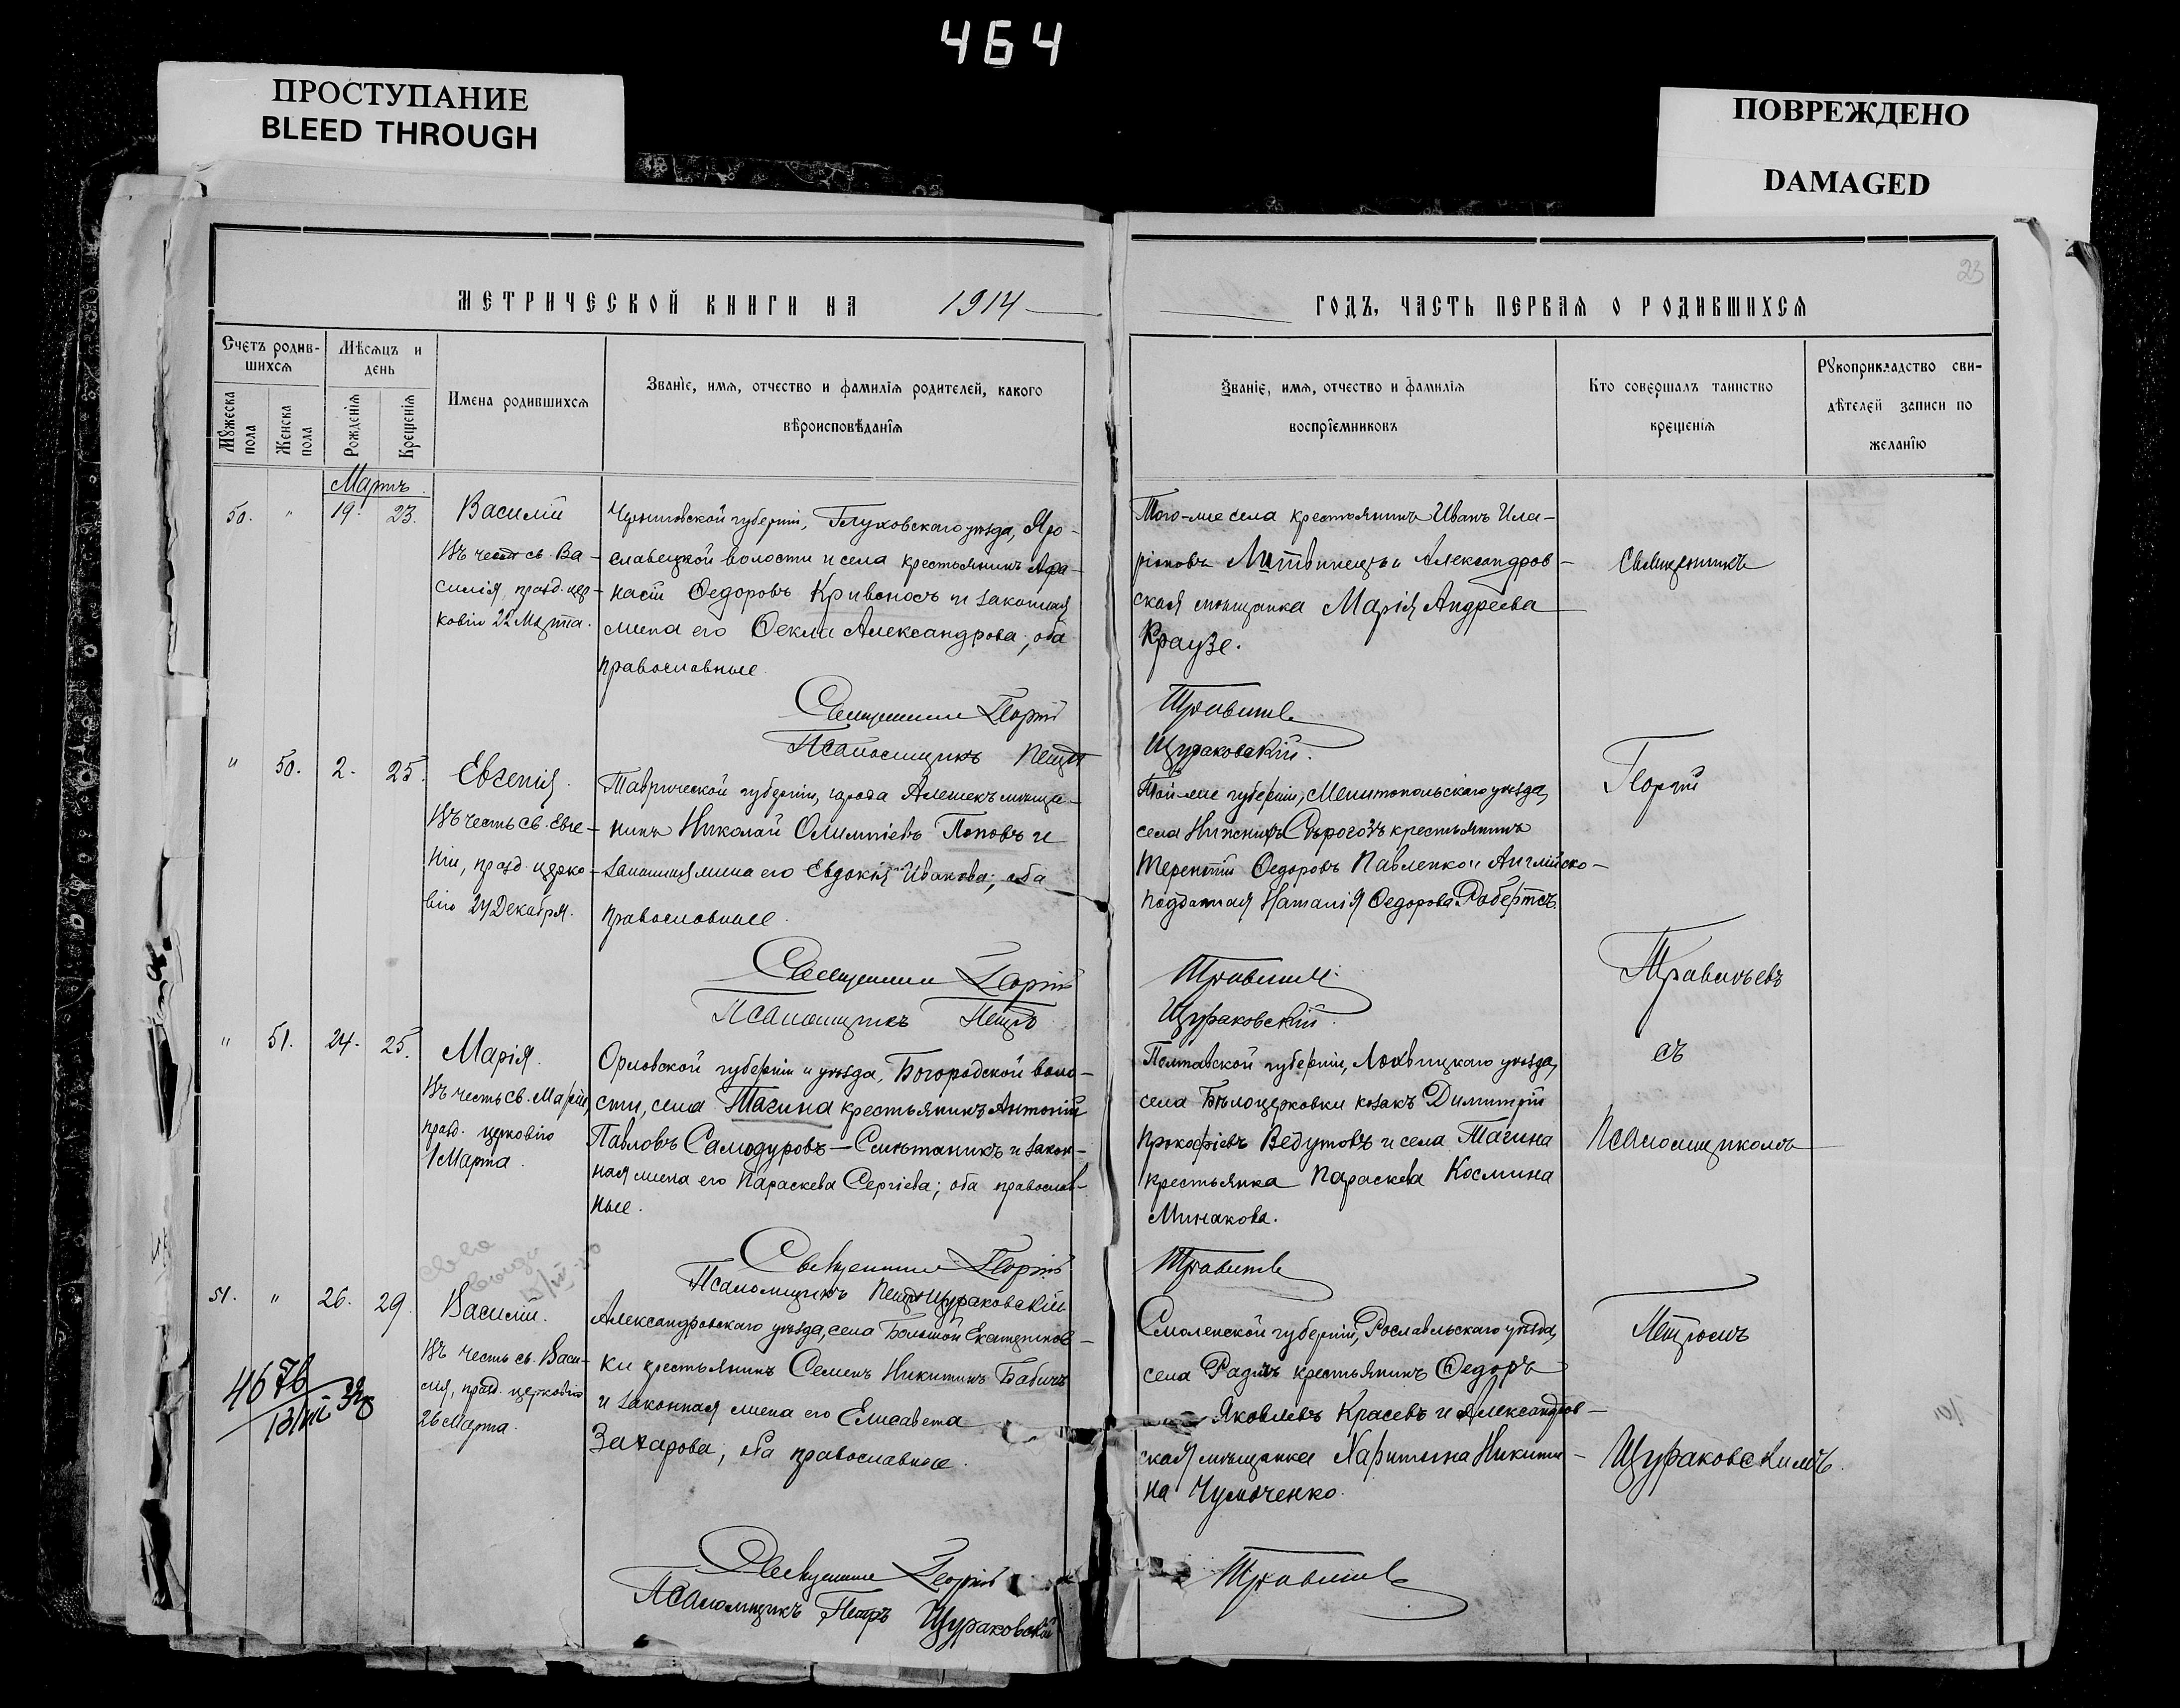 464
ПРОСТУПАНИЕ
BLEED THROUGH
ПОВРЕЖДЕНО
DAMAGED
23
МЕТРИЧЕСКОЙ КНИГИ НА 1914
ГОДЪ, ЧАСТЬ ПЕРВАЯ О РОДИВШИХСЯ
Счетъ родив-
шихся
Мужеска
пола
Женска
пола
Мѣсяцъ и
день
Рожденія
Крещенія
Имена родившихся
Званіе, имя, отчество и фамилія родителей, какого
вѣроисповѣданія
Званіе, имя, отчество и фамилія
воспріемниковъ
Кто совершалъ таинство
крещенія
Рукоприкладство сви-
дѣтелей записи по
желанію
Мартъ
50. " 19. 23.
Василій
Въ честь св. Ва-
силія, празд. цер-
ковію 22 Марта.
Черниговской губерніи, Глуховскаго уѣзда, Яро-
славецкой волости и села крестьянинъ Афа-
насій Ѳедоровъ Кривоносъ и законная
жена его Ѳекла Александрова; оба
православные.
Священникъ Георгій
Псаломщикъ Петръ
Того-же села крестьянинъ Иванъ Ила-
ріоновъ Литвинецъ и Александров-
ская мѣщанка Марія Андреева
Краузе.
Травинъ
Щураковскій.
" 50. 2. 25.
Евгенія.
Въ честь св. Евге-
ніи, празд. церко-
вію 24 Декабря.
Таврической губерніи, города Алешекъ мѣща-
нинъ Николай Олимпіевъ Поповъ и
законная жена его Евдокія Иванова; оба
православные.
Священникъ Георгій
Псаломщикъ Петръ
Той-же губерніи, Мелитопольскаго уѣзда,
села Нижнихъ Сѣрогозъ крестьянинъ
Терентій Ѳедоровъ Павленко и Англійско-
подданная Наталія Ѳедорова Робертсъ.
Щураковскій.
" 51. 24. 25.
Марія.
Въ честь св. Маріи,
празд. церковію
1 Марта.
Орловской губерніи и уѣзда, Богородской воло-
сти, села Тагина крестьянинъ Антоній
Павловъ Самодуровъ—Смѣтаникъ и закон-
ная жена его Параскева Сергіева; оба православ-
ные.
Священникъ Георгій
Псаломщикъ Петръ Щураковскій
Полтавской губерніи, Лохвицкаго уѣзда,
села Бѣлоцерковки козакъ Димитрій
Прокофіевъ Ведутовъ и села Тагина
крестьянка Параскева Космина
Минакова.
51. " 26. 29.
Василій.
Въ честь св. Васи-
лія, празд. церковію
26 Марта.
Александровскаго уѣзда, села Большой Екатеринов-
ки крестьянинъ Семенъ Никитинъ Бабичъ
и законная жена его Елисавета
Захарова, оба православные.
Священникъ Георгій
Псаломщикъ Петръ Щураковскій
Смоленской губерніи, Рославльскаго уѣзда,
села Радичъ крестьянинъ Ѳедоръ
Яковлевъ Красевъ и Александров-
ская мѣщанка Харитина Никити-
на Чумаченко.
Священникъ
Георгій
съ
Псаломщикомъ
Петромъ
Щураковскимъ.
4676